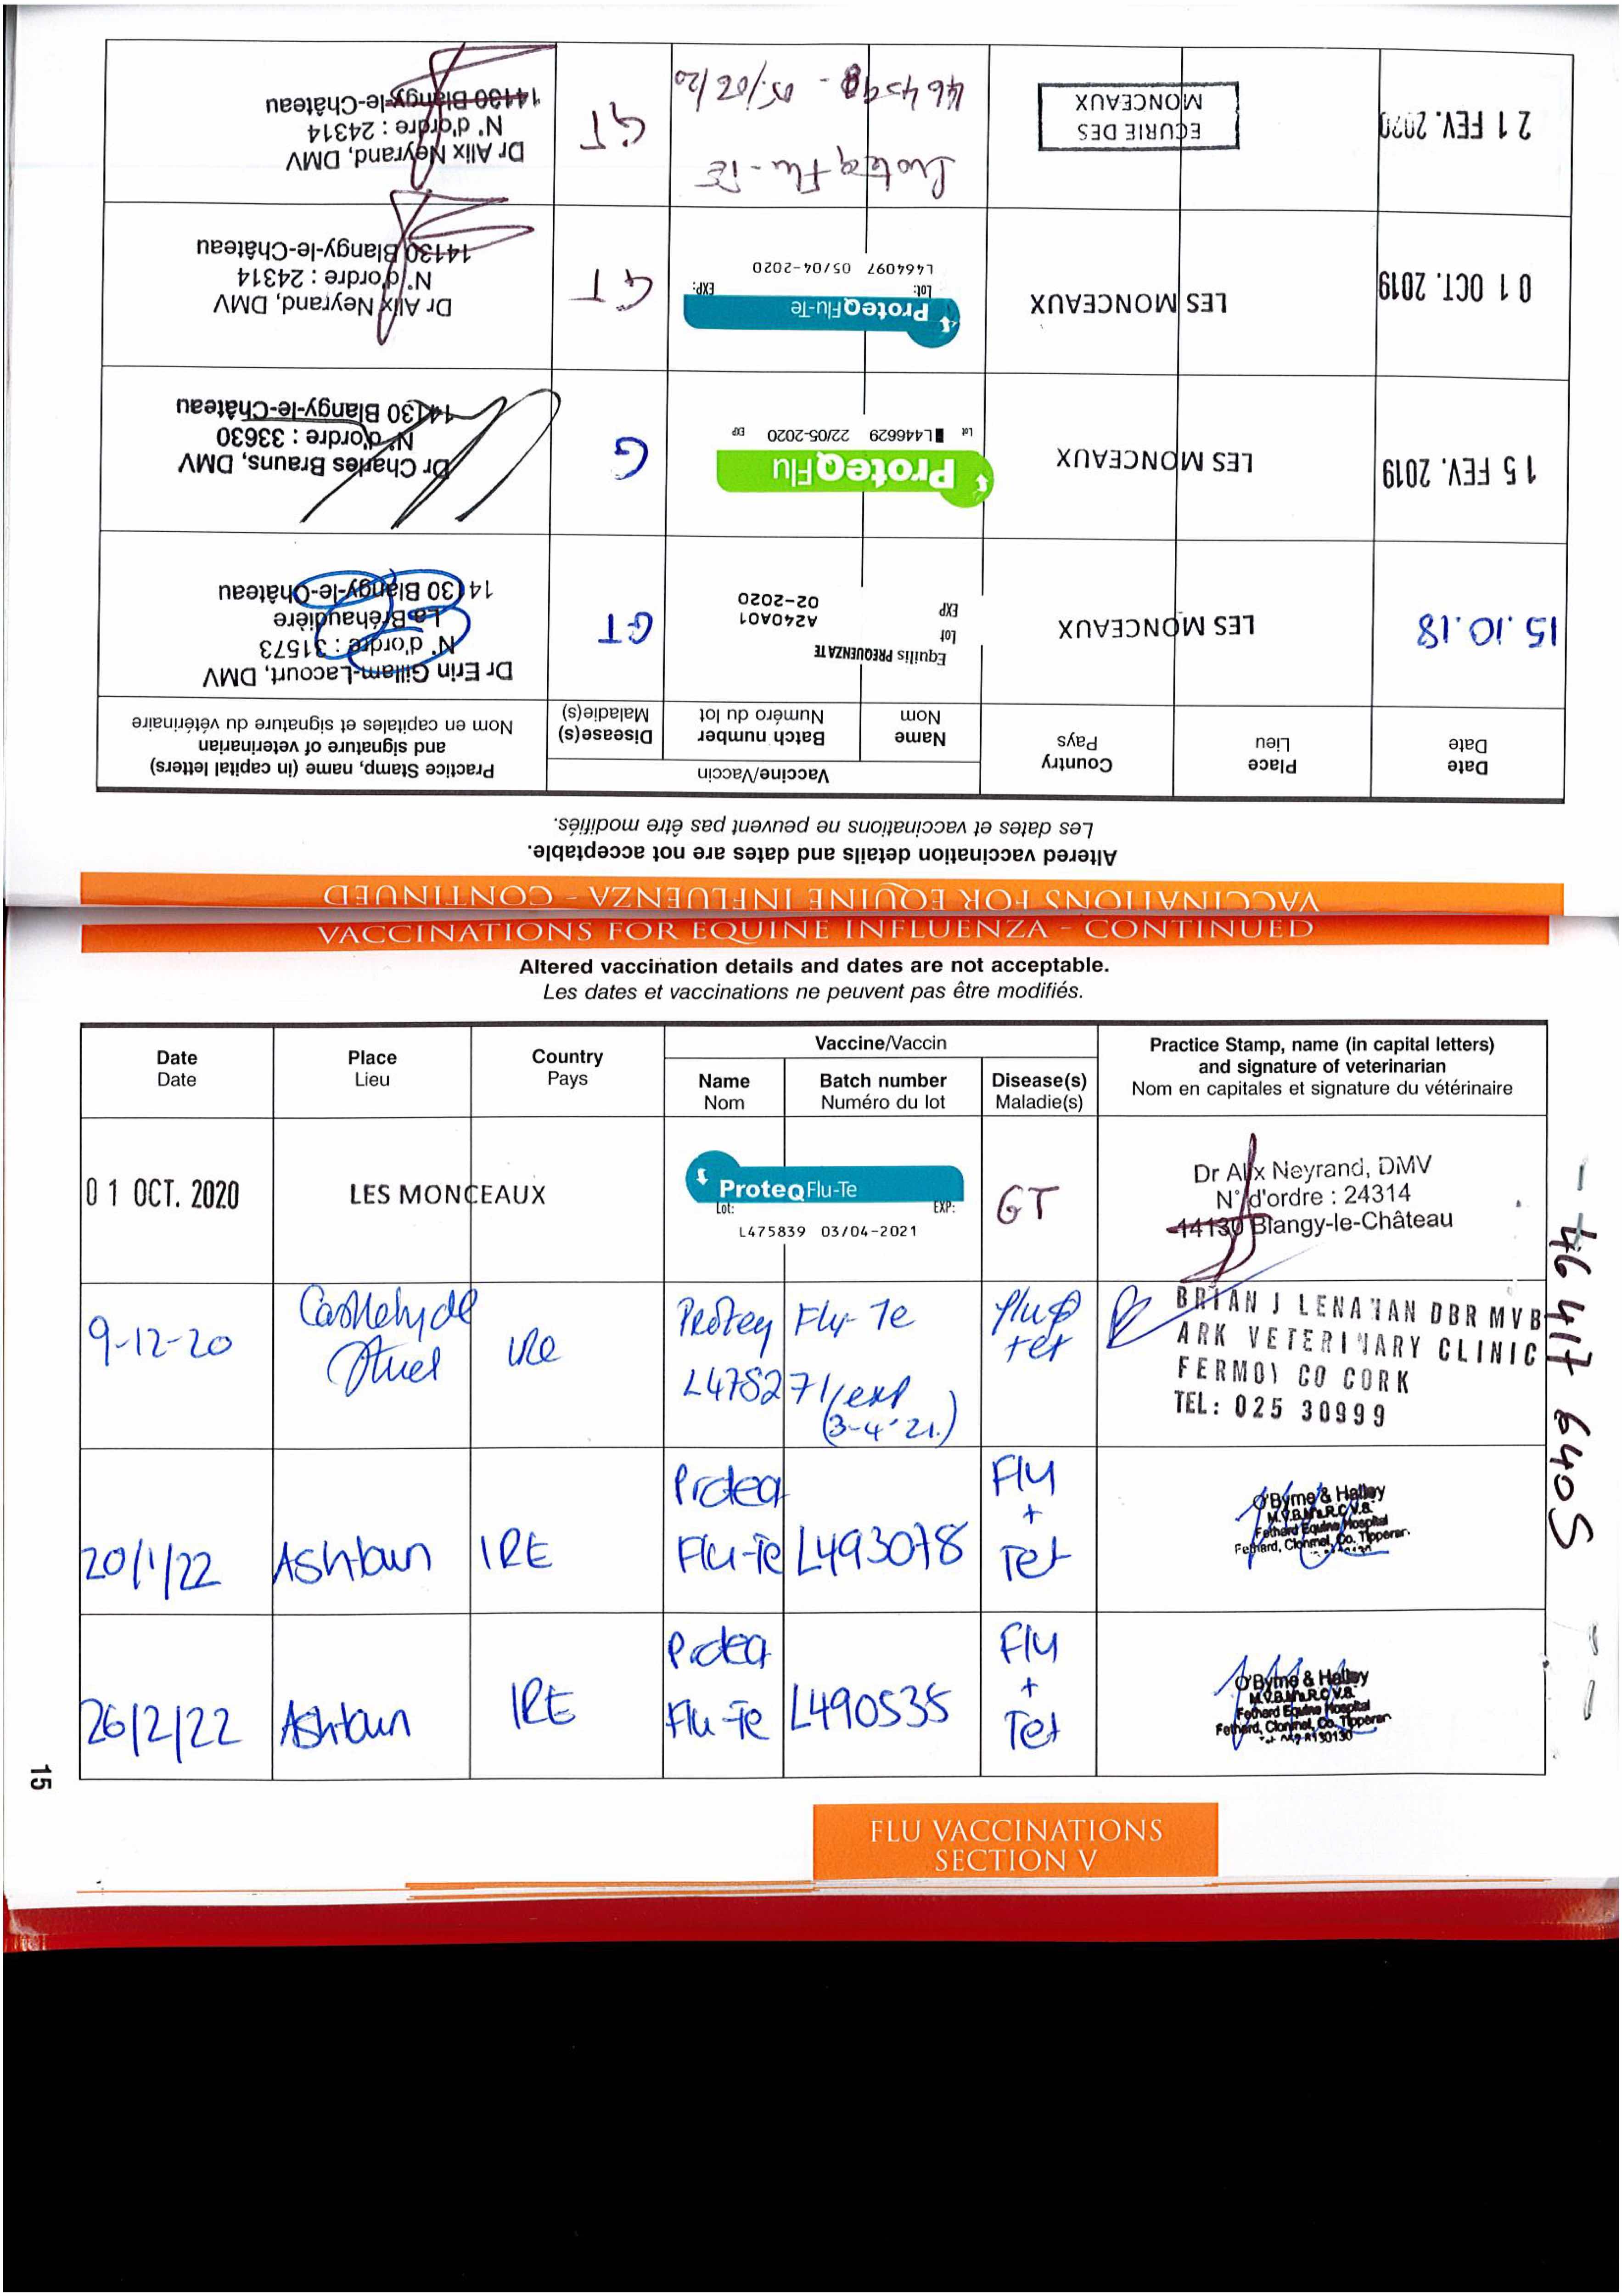 VACCINATIONS FOR EQUINE INFLUENZA - CONTINUED
Altered vaccination details and dates are not acceptable.
Les dates et vaccinations ne peuvent pas être modifiés.
Date
Date
Place
Lieu
Country
Pays
Vaccine/Vaccin
Name
Nom
Batch number
Numéro du lot
Disease(s)
Maladie(s)
Practice Stamp, name (in capital letters)
and signature of veterinarian
Nom en capitales et signature du vétérinaire
15.10.18
LES MONCEAUX
Equilis PREQUENZA TE
Lot A240A01
EXP 02-2020
GT
Dr Erin Gillam-Lacourt, DMV
N° d'ordre : 31573
La Bréhaudière
14130 Blangy-le-Château
15 FEV. 2019
LES MONCEAUX
ProteqFlu
Lot L446629 22/05-2020 EXP
G
Dr Charles Brauns, DMV
N° d'ordre : 33630
14130 Blangy-le-Château
01 OCT. 2019
LES MONCEAUX
ProteqFlu-Te
Lot: EXP:
L464097 05/04-2020
GT
Dr Alix Neyrand, DMV
N° d'ordre : 24314
14130 Blangy-le-Château
21 FEV. 2020
ECURIE DES
MONCEAUX
Proteq Flu-Te
GT
Dr Alix Neyrand, DMV
N° d'ordre : 24314
14130 Blangy-le-Château
VACCINATIONS FOR EQUINE INFLUENZA - CONTINUED
Altered vaccination details and dates are not acceptable.
Les dates et vaccinations ne peuvent pas être modifiés.
Date
Date
Place
Lieu
Country
Pays
Vaccine/Vaccin
Name
Nom
Batch number
Numéro du lot
Disease(s)
Maladie(s)
Practice Stamp, name (in capital letters)
and signature of veterinarian
Nom en capitales et signature du vétérinaire
01 OCT. 2020
LES MONCEAUX
ProteqFlu-Te
Lot: EXP:
L475839 03/04-2021
GT
Dr Alix Neyrand, DMV
N° d'ordre : 24314
14130 Blangy-le-Château
9-12-20
Castlehyde
IRE
Proteq Flu-Te
L478271/exp
(3-4-21.)
flu &
tet
BRIAN J LENAHAN DBR MVB
ARK VETERINARY CLINIC
FERMOY CO CORK
TEL: 025 30999
20/1/22
Ashtown
IRE
Proteq
Flu-Te
L493078
Flu
+
Tet
O'Byrne & Halley
M.V.B. M.R.C.V.S.
Fethard Equine Hospital
Fethard, Clonmel, Co. Tipperary.
26/2/22
Ashtown
IRE
Proteq
Flu-Te
L490535
Flu
+
Tet
O'Byrne & Halley
M.V.B. M.R.C.V.S.
Fethard Equine Hospital
Fethard, Clonmel, Co. Tipperary
15
FLU VACCINATIONS
SECTION V